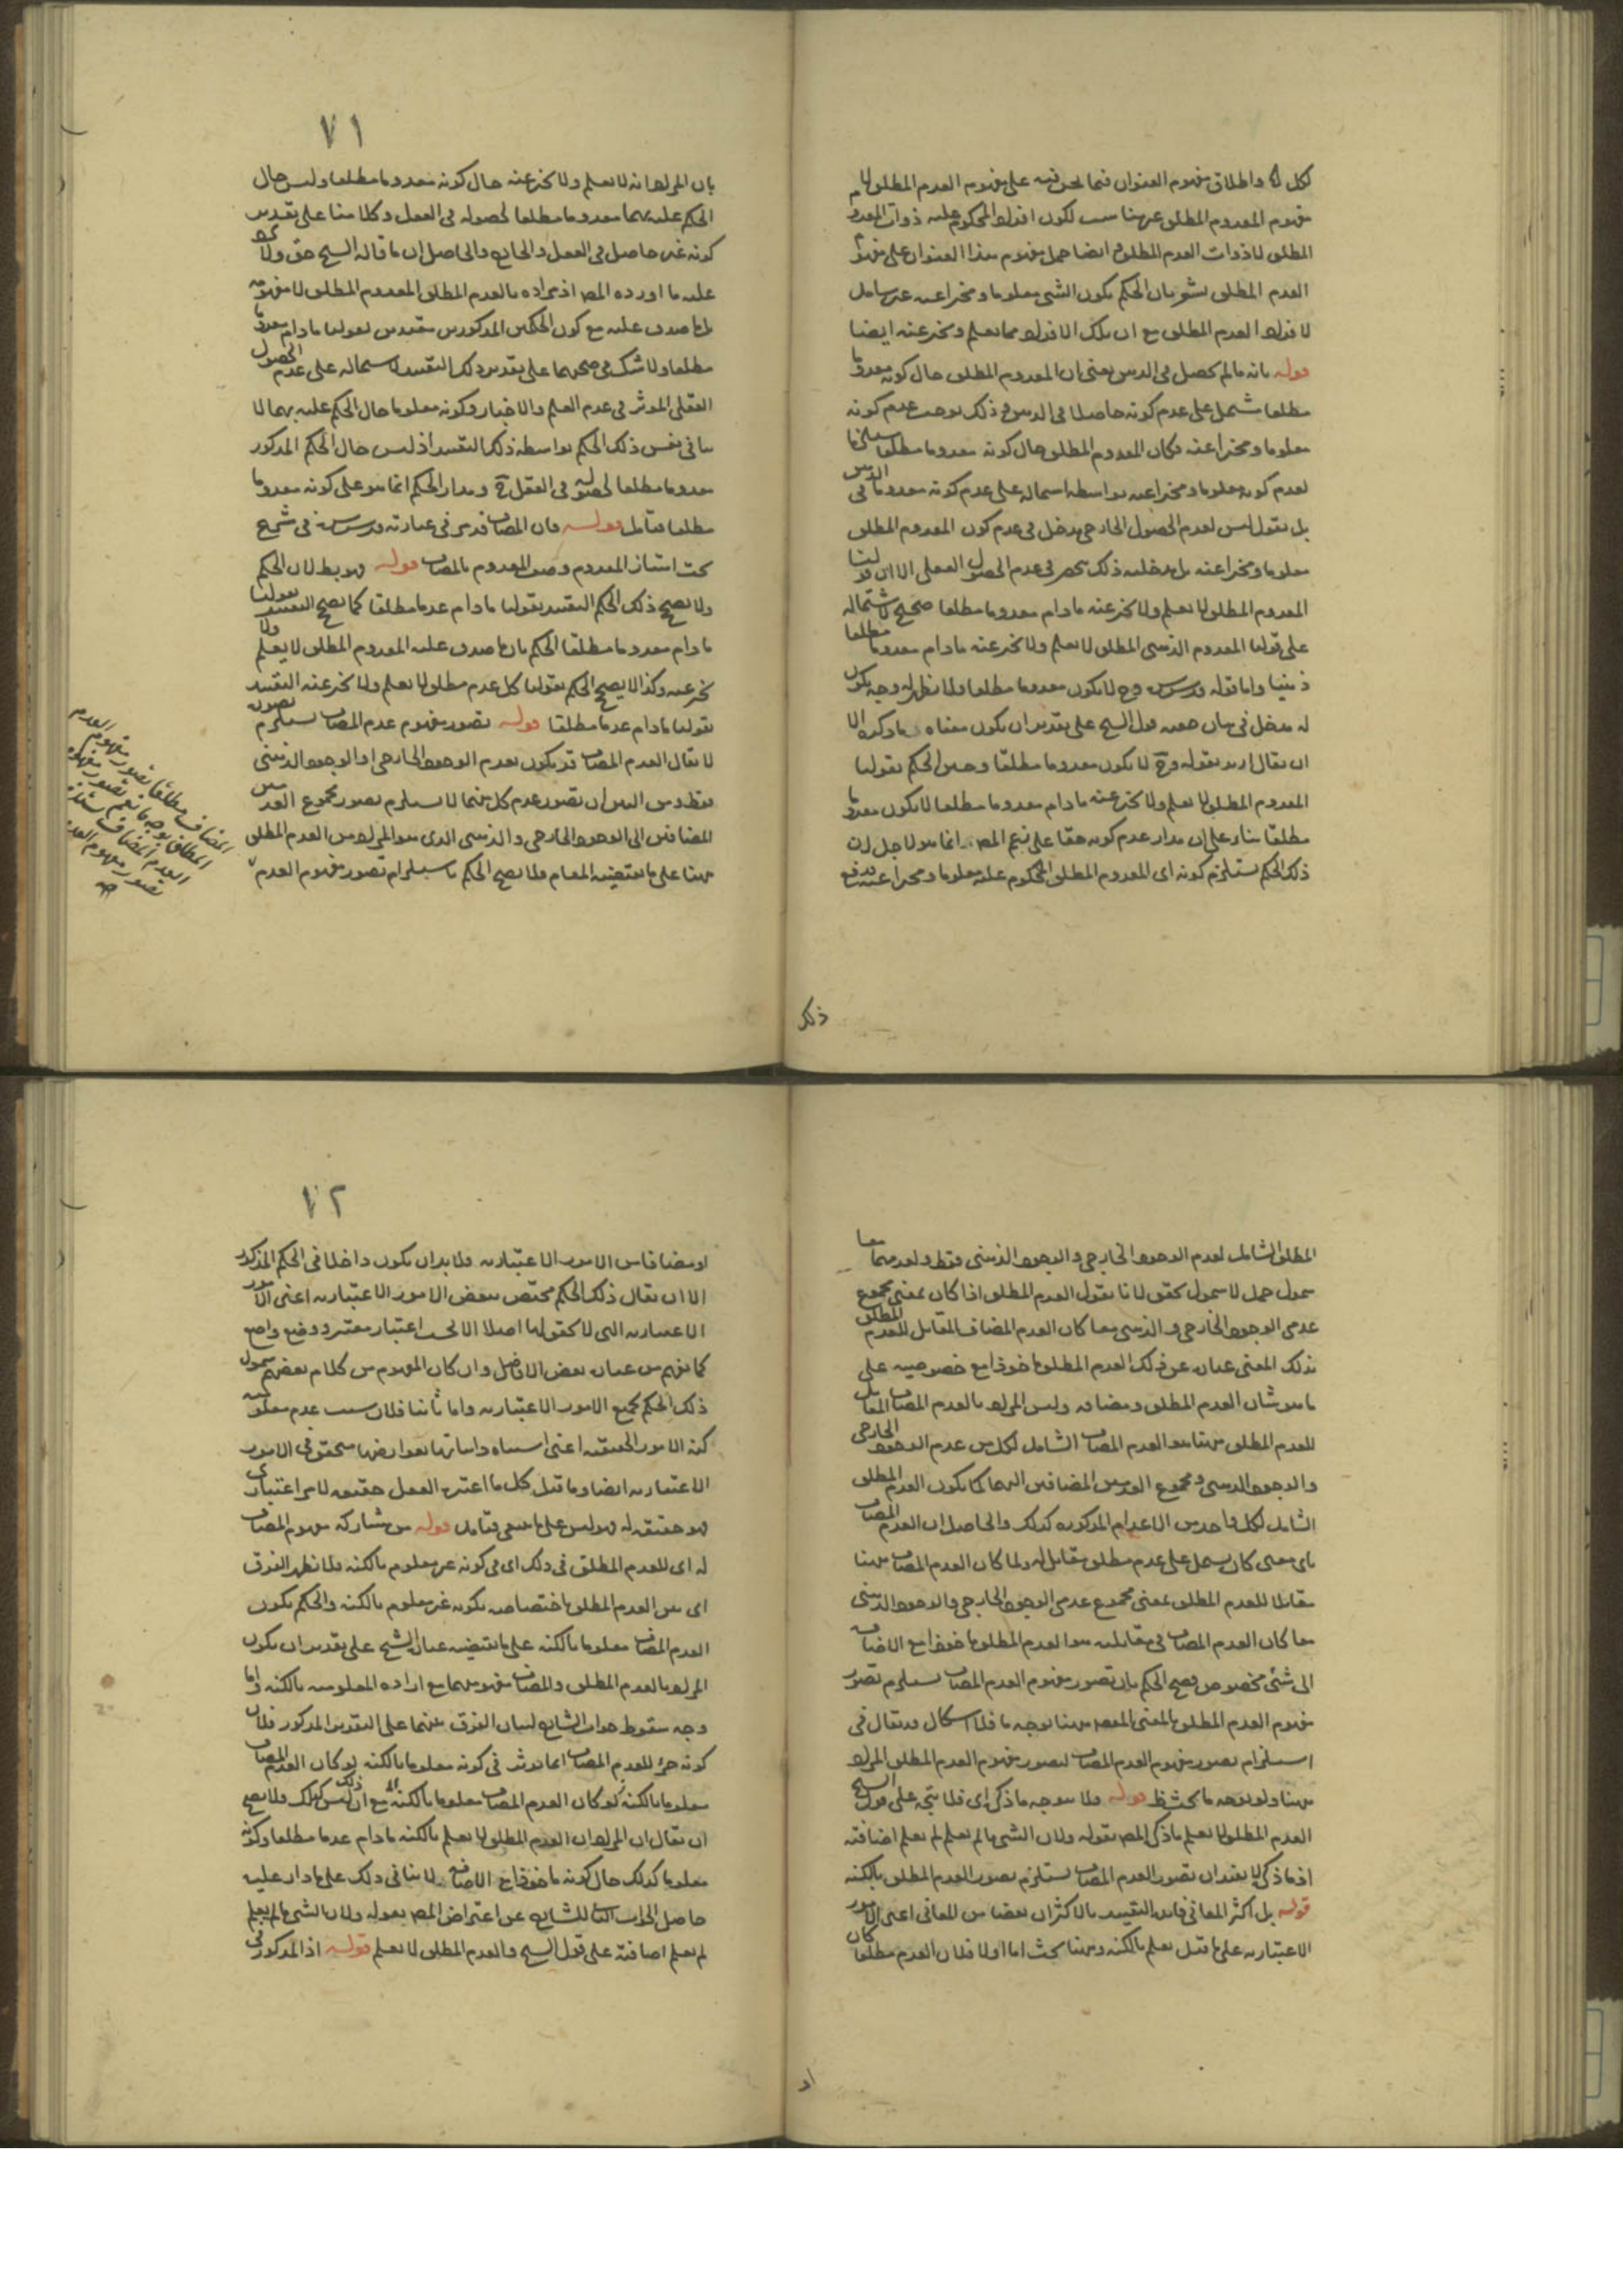 لكل لما واطلاق مفهوم العنوان فيما نحن فيه على مفهوم العدم المطلق لا
مفهوم المعدوم المطلق عن هنا سبب لكون افراد المحكوم عليه ذوات المعدوم
المطلق لا ذوات العدم المطلق وايضا حمل مفهوم هذا العنوان على مفهوم
العدم المطلق يشعر بان الحكم بكون الشئ معلوما ومخبرا عنه غير شامل
لافراد العدم المطلق مع ان تلك الافراد مما يعلم ويخبر عنه ايضا
قوله بانه ما لم يحصل في الذهن يعنى ان المعدوم المطلق حال كونه معدوما
مطلقا يشتمل على عدم كونه حاصلا في الذهن وذلك يوجب عدم كونه
معلوما ومخبرا عنه فكان المعدوم المطلق حال كونه معدوما مطلقا مستلزما
لعدم كونه معلوما ومخبرا عنه بواسطة اشتماله على عدم كونه معدوما في الذهن
بل نقول ليس لعدم الحصول الخارجى مدخل في عدم كون المعدوم المطلق
معلوما ومخبرا عنه بل مدخلية ذلك تنحصر في عدم الحصول العقلى الا ان قولنا
المعدوم المطلق لا يعلم ولا يخبر عنه ما دام معدوما مطلقا صحيح لاشتماله
على قولنا المعدوم الذهنى المطلق لا يعلم ولا يخبر عنه ما دام معدوما مطلقا
ذهنيا واما قوله قدس سره وح لا يكون معدوما مطلقا فلا يظهر له وجه يكون
له مدخل في بيان حقية قول الشيخ على تقدير ان يكون معناه ما ذكره الا
ان يقال اريد بقوله وح لا يكون معدوما مطلقا وحين الحكم بقولنا
المعدوم المطلق لا يعلم ولا يخبر عنه ما دام معدوما مطلقا لا يكون معدوما
مطلقا بناء على ان مدار عدم كونه حقا على زعم المص انما هو لاجل ان
ذلك الحكم يستلزم كونه اى المعدوم المطلق المحكوم عليه معلوما ومخبرا عنه فدفع
ذلك
٧١
بان المراد انه لا يعلم ولا يخبر عنه حال كونه معدوما مطلقا وليس حال
الحكم عليه بهما معدوما مطلقا لحصوله في العقل وكلامنا على تقدير
كونه غير حاصل في العقل والخارج والحاصل ان ما قاله الشيخ حق ولا يرد
عليه ما اورده المص اذ مراده بالعدم المطلق المعدوم المطلق لا مفهومه
بل ما صدق عليه مع كون الحكمين المذكورين مقيدين بقولنا ما دام معدوما
مطلقا ولا شك في صحتهما على تقدير ذلك التقييد لاشتماله على عدم الحصول
العقلى الموثر في عدم العلم والاخبار وكونه معلوما حال الحكم عليه بهما لا
ينافى نفس ذلك الحكم بواسطة ذلك التقييد اذ ليس حال الحكم المذكور
معدوما مطلقا لحصوله في العقل ح ومدار الحكم انما هو على كونه معدوما
مطلقا فتامل قوله فان المضاف قدس في عبارته قدس سره في شرح
بحث امتياز المعدوم وصف المعدوم بالمضاف قوله فهو بط لان الحكم
ولا يصح ذلك الحكم التقييد بقولنا ما دام عدما مطلقا كما يصح التقييد بقولنا
ما دام معدوما مطلقا الحكم بان ما صدق عليه المعدوم المطلق لا يعلم ولا
يخبر عنه وكذا لا يصح الحكم بقولنا كل عدم مطلق لا يعلم ولا يخبر عنه التقييد
بقولنا ما دام عدما مطلقا قوله تصور مفهوم عدم المضاف يستلزم تصور
لا يقال العدم المضاف قد يكون بعدم الوجود الخارجى او الوجود الذهنى
فقط ومن البين ان تصور عدم كل منهما لا يستلزم تصور مجموع العدمين
المضافين الى الوجود الخارجى والذهنى الذى هو المراد من العدم المطلق
ههنا على ما يقتضيه المقام فلا يصح الحكم باستلزام تصور مفهوم العدم
المضاف مطلقا تصور مفهوم العدم
المطلق بوجه ما نعم تصور مفهوم
العدم المضاف يستلزم
تصور مفهوم العدم
صح
المطلق الشامل لعدم الوجود الخارجى والوجود الذهنى فقط ولعدمهما معا
شمول حمل لا شمول تحقق لانا نقول العدم المطلق اذا كان بمعنى مجموع
عدمى الوجود الخارجى والذهنى معا كان العدم المضاف المقابل للعدم المطلق
بذلك المعنى عبارة عن ذلك العدم المطلق ماخوذا مع خصوصية على
ما هو شان العدم المطلق ومضافه وليس المراد بالعدم المضاف المقابل
للعدم المطلق ههنا هو العدم المضاف الشامل لكل من عدم الوجود الخارجى
والوجود الذهنى ومجموع العدمين المضافين اليهما كما يكون العدم المطلق
الشامل لكل واحد من الاعدام المذكورة كذلك والحاصل ان العدم المضاف
باى معنى كان يحمل على عدم مطلق مقابل له ولما كان العدم المضاف ههنا
مقابلا للعدم المطلق بمعنى مجموع عدمى الوجود الخارجى والوجود الذهنى
معا كان العدم المضاف في مقابلته هو العدم المطلق ماخوذا مع الاضافة
الى شئ مخصوص فصح الحكم بان تصور مفهوم العدم المضاف يستلزم تصور
مفهوم العدم المطلق بالمعنى المقصود ههنا بوجه ما فلا اشكال قد يقال في
استلزام تصور مفهوم العدم المضاف لتصور مفهوم العدم المطلق المراد
ههنا ولو بوجه ما بحث ظ قوله فلا يتوجه ما ذكر اى فلا يتجه على قول الشيخ
العدم المطلق لا يعلم ما ذكر المص بقوله ولان الشئ ما لم يعلم لم يعلم اضافته
اذ ما ذكر لا يفيد ان تصور العدم المضاف يستلزم تصور العدم المطلق بالكنه
قوله بل اكثر المعانى فايدة التقييد بالاكثر ان بعضا من المعانى اعنى الامور
الاعتبارية على ما قيل يعلم بالكنه وههنا بحث اما اولا فلان العدم مطلقا كان
او
٧٢
او مضافا من الامور الاعتبارية فلا بد ان يكون داخلا في الحكم المذكور
الا ان يقال ذلك الحكم مختص ببعض الامور الاعتبارية اعنى الامور
الاعتبارية التى لا تحقق لها اصلا الا بحسب اعتبار معتبر ووضع واضع
كما يفهم من عبارة بعض الافاضل وان كان المفهوم من كلام بعضهم شمول
ذلك الحكم لجميع الامور الاعتبارية واما ثانيا فلان سبب عدم معلومية
كنه الامور الحقيقية اعنى اشتباه ذاتياتها بعوارضها متحقق في الامور
الاعتبارية ايضا وما قيل كل ما اعتبره العقل حقيقة لامر اعتبارى
فهو حقيقة له فهو ليس على ما ينبغى فتامل قوله من مشاركة مفهوم المضاف
له اى للعدم المطلق في ذلك اى في كونه غير معلوم بالكنه فلا يظهر الفرق
اى بين العدم المطلق باختصاصه بكونه غير معلوم بالكنه والحكم بكون
العدم المضاف معلوما بالكنه على ما يقتضيه عبارة الشيخ على تقدير ان يكون
المراد بالعدم المطلق والمضاف مفهومهما مع ارادة المعلومية بالكنه واما
وجه سقوط جواب الشارح لبيان الفرق بينهما على التقدير المذكور فلان
كونه جزء للعدم المضاف انما يوثر في كونه معلوما بالكنه لو كان العدم المضاف
معلوما بالكنه لو كان العدم المضاف معلوما بالكنه مع ان ذلك ليس كذلك فلا يصح
ان يقال ان المراد ان العدم المطلق لا يعلم بالكنه ما دام عدما مطلقا وكونه
معلوما كذلك حال كونه ماخوذا مع الاضافة لا ينافى ذلك على ما دار عليه
حاصل الجواب للشارح عن اعتراض المص بقوله ولان الشئ ما لم يعلم
لم يعلم اضافته على قول الشيخ والعدم المطلق لا يعلم قوله اذ المذكور في